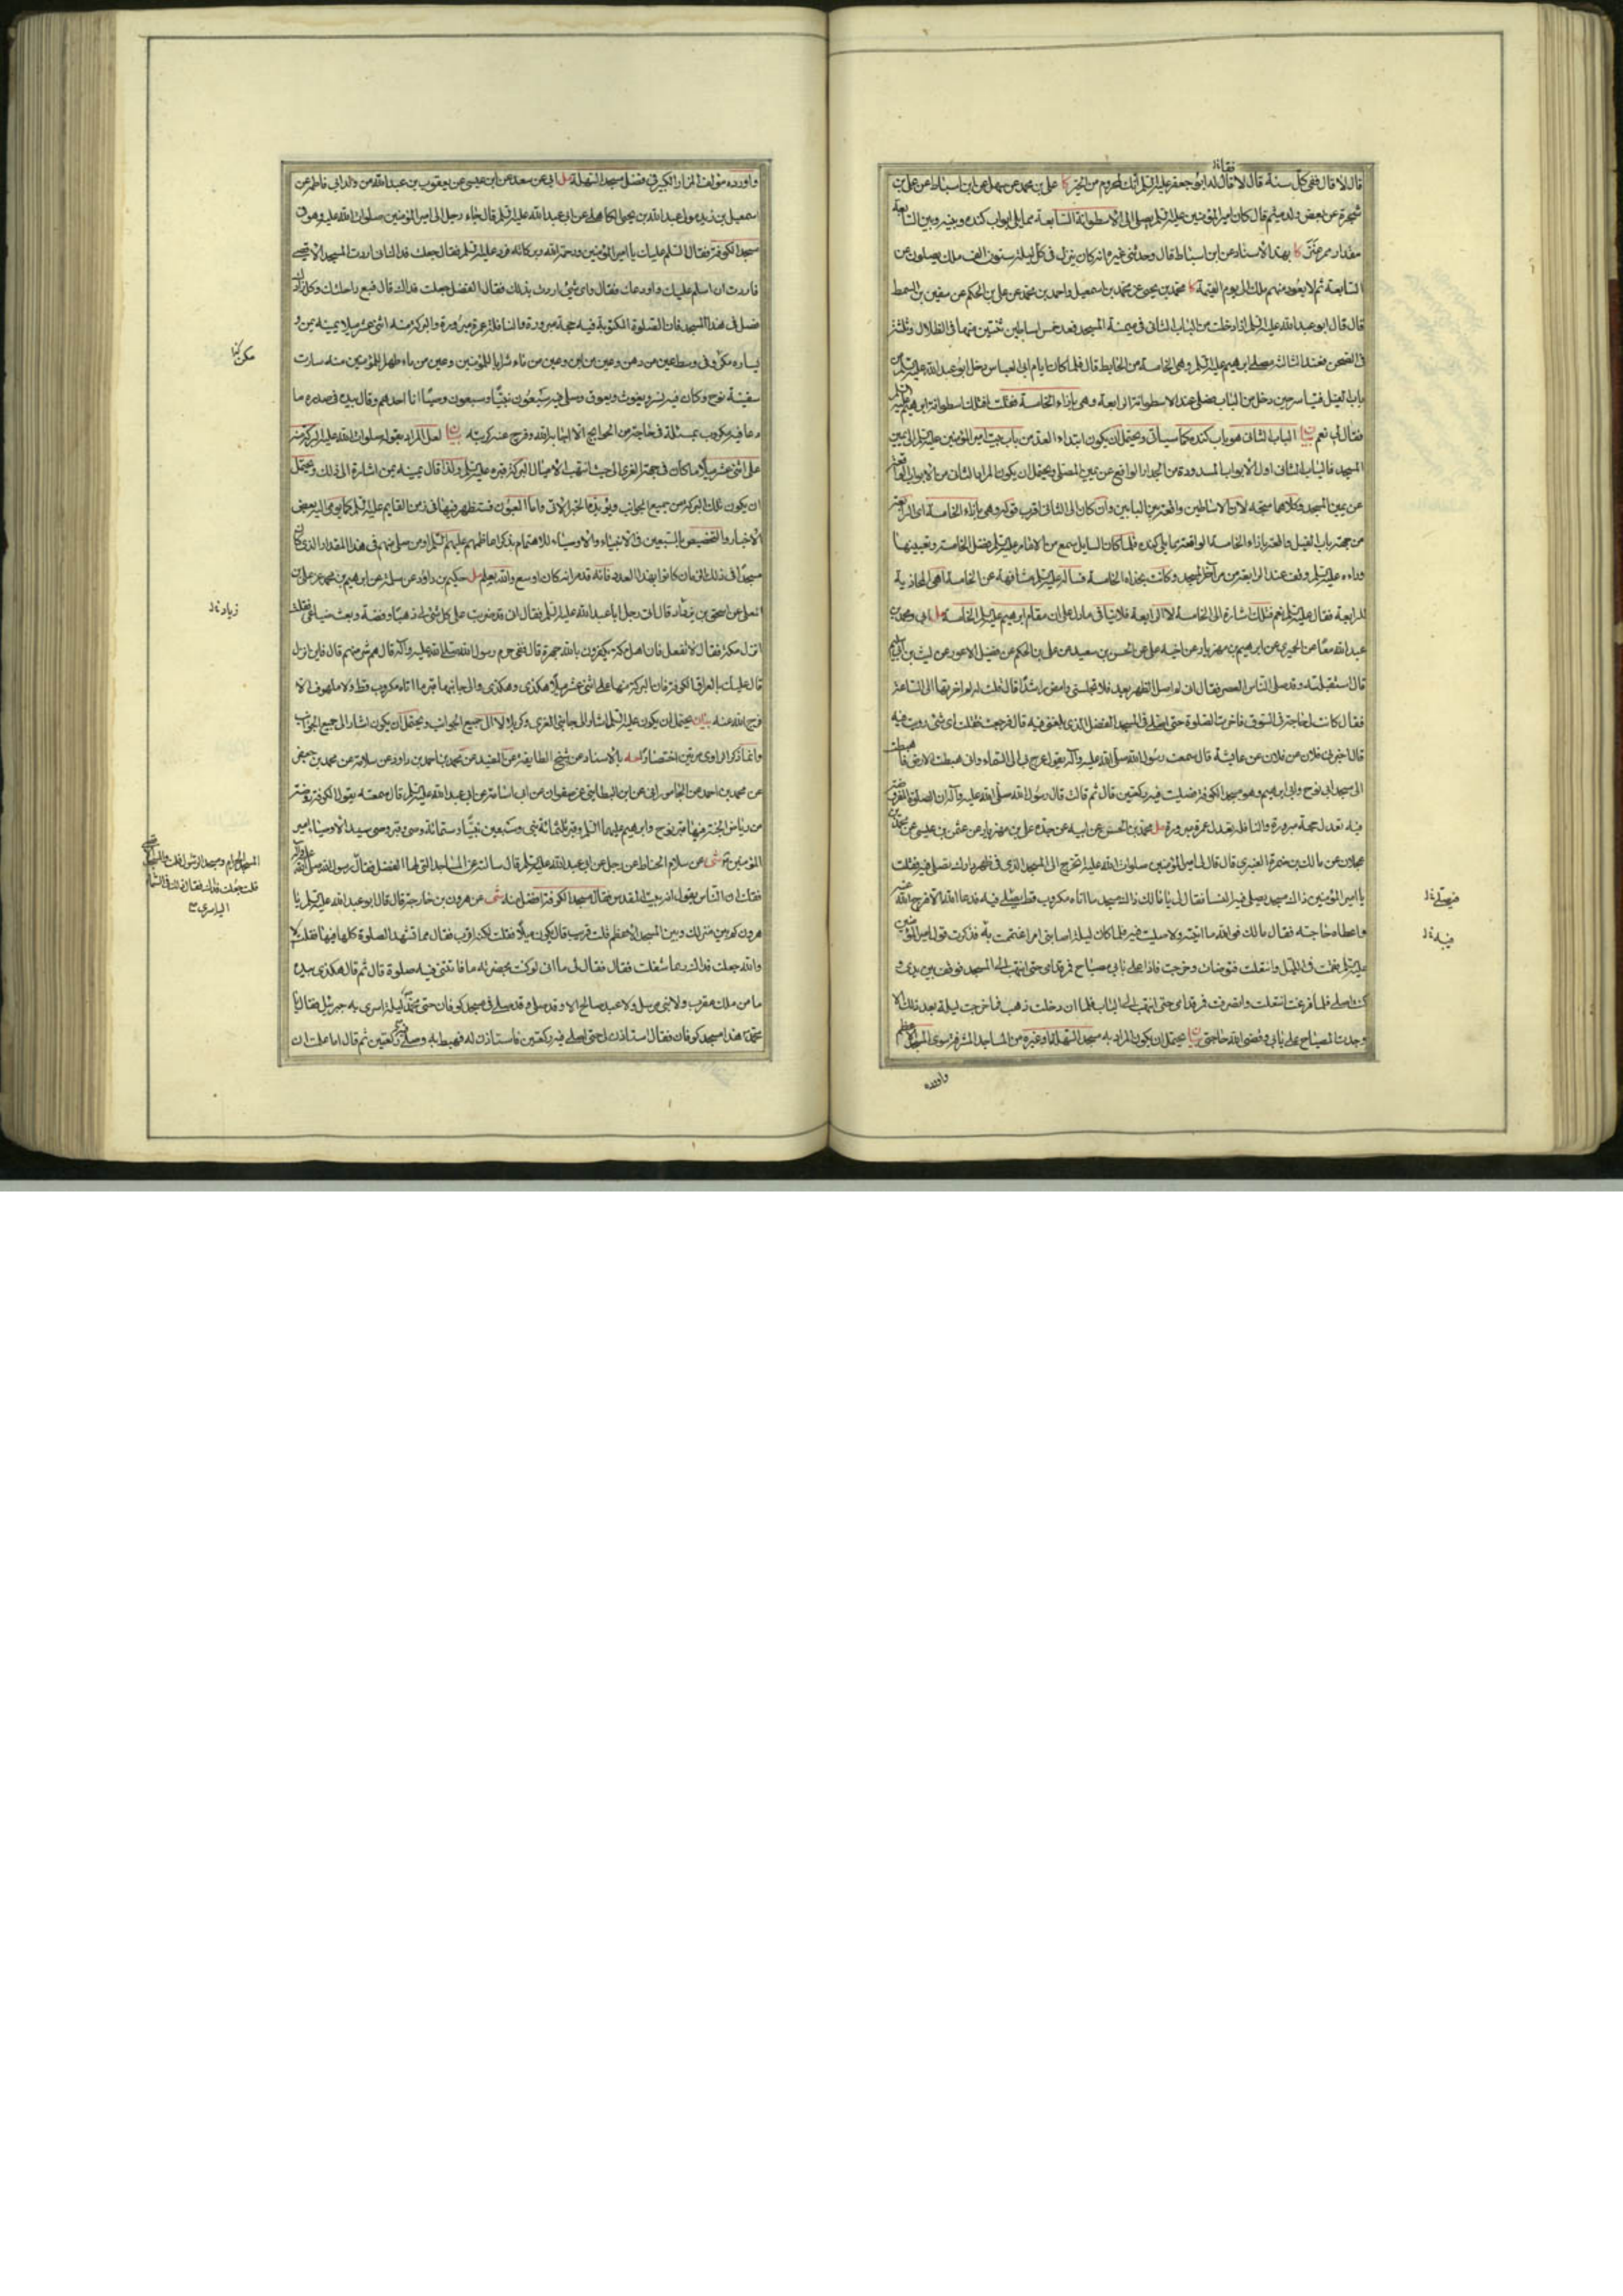 قال لا قال ففى كل سنة قال لا فقال له ابو جعفر عليه السلام انك لمحروم من الخير كا على بن محمد عن سهل عن ابن اسباط عن على بن
شجرة عن بعض ولد ميثم قال كان امير المؤمنين عليه السلام يصلى الى الاسطوانة السابعة مما يلى ابواب كندة وبينه وبين السابعة
مقدار ممر عنز كا بهذا الاسناد عن ابن اسباط قال وحدثنى غيره انه كان ينزل فى كل ليلة ستون الف ملك يصلون عن
السابعة ثم لا يعود منهم ملك الى يوم القيمة كا محمد بن يحيى عن محمد بن اسمعيل واحمد بن محمد عن على بن الحكم عن سفين بن السمط
قال قال ابو عبد الله عليه السلام اذا دخلت من الباب الثانى فى ميمنة المسجد فعد خمس اساطين ثنتين منها فى الظلال وثلثة
فى الصحن فعند الثالثة مصلى ابرهيم عليه السلام وهى الخامسة من الحايط قال فلما كان ايام ابى العباس دخل ابو عبد الله عليه السلام من
باب الفيل فتياسر حين دخل من الباب فصلى عند الاسطوانة الرابعة وهى بازاء الخامسة فقلت افتلك اسطوانة ابرهيم عليه السلام
فقال لى نعم بيان الباب الثانى هو باب كندة كما سيأتى ويحتمل ان يكون ابتداء العد من باب بيت امير المؤمنين عليه السلام
المسجد فالباب الثانى اول الابواب المسدودة من الجدار الواقع عن يمين المصلى ويحتمل ان يكون المراد الثانى من الابواب الواقعة
عن يمين المسجد وكلاهما متجه لان الاساطين واقعة بين البابين وان كان الى الثانى اقرب قوله وهى بازاء الخامسة اى الرابعة
من جهة باب الفيل واقعة بازاء الخامسة الواقعة مما يلى كندة فلما كان السايل سمع من الامام عليه السلام فضل الخامسة وتعيينها
وراه عليه السلام وقف عند الرابعة من آخر المسجد وكانت بحذاء الخامسة فسأله عليه السلام مشافهة عن الخامسة اهى المحاذية
للرابعة فقال عليه السلام نعم فتلك اشارة الى الخامسة لا الى الرابعة فلا ينافى ما دل على ان مقام ابرهيم عليه السلام الخامسة مل ابى ومحمد بن
عبد الله معا من الحميرى عن ابرهيم بن مهزيار عن اخيه على عن الحسن بن سعيد عن على بن الحكم عن فضيل الاعور عن ليث بن ابى سليم
قال استقبلته وقد صلى الناس العصر فقال انى لم اصل الظهر بعد فلا تحبسنى وامض راشدا قال قلت له لم اخرتها الى الساعة
فقال كانت لى حاجة فى السوق فاخرت الصلوة حتى اصلى فى المسجد للفضل الذى بلغنى فيه قال فرجعت فقلت اى شئ رويت فيه
قال اخبرنى فلان عن فلان عن عايشة قال سمعت رسول الله صلى الله عليه وآله يقول عرج بى الى السماء وانى هبطت الى الارض فاهبطت
الى مسجد ابى نوح وابى ابرهيم وهو مسجد الكوفة فصليت فيه ركعتين قال ثم قالت قال رسول الله صلى الله عليه وآله ان الصلوة المفروضة
فيه تعدل حجة مبرورة والنافلة تعدل عمرة مبرورة مل محمد بن الحسن عن ابيه عن جده على بن مهزيار عن عثمن بن عيسى عن محمد بن
عجلان عن مالك بن ضمرة العنبرى قال قال لى امير المؤمنين صلوات الله عليه اتخرج الى المسجد الذى فى ظهر دارك تصلى فيه فقلت
يا امير المؤمنين ذاك مسجد يصلى فيه النسا فقال لى يا مالك ذاك مسجد ما اتاه مكروب قط يصلى فيه فدعا الله الا فرج الله عنه
واعطاه حاجته فقال مالك فوالله ما اتيته ولا صليت فيه فلما كان ليلة اصابنى امر اغتممت به فذكرت قول امير المؤمنين
عليه السلام فقمت فى الليل وانتقلت فتوضات وخرجت فاذا على بابى مصباح فمر قدامى حتى انتهيت الى المسجد فوقف بين يدى و
كنت اصلى فلما فرغت انتقلت وانصرفت فمر قدامى حتى انتهيت الى الباب فلما ان دخلت ذهب فما خرجت ليلة بعد ذلك الا
وجدت المصباح على بابى وقضى الله حاجتى بيان يحتمل ان يكون المراد به مسجد السهلة او غيره من المساجد المشرفة سوى المسجد الاعظم
واورده
فيصلى خ ل
فيه خ ل
واورده مؤلف المزار الكبير فى فضل مسجد السهلة مل ابى عن سعد عن ابن عيسى عن يعقوب بن عبد الله من ولد ابى فاطمة عن
اسمعيل بن زيد مولى عبد الله بن يحيى الكاهلى عن ابى عبد الله عليه السلام قال جاء رجل الى امير المؤمنين صلوات الله عليه وهو فى
مسجد الكوفة فقال السلم عليك يا امير المؤمنين ورحمة الله وبركاته فرد عليه السلم فقال جعلت فداك انى اردت المسجد الاقصى
فاردت ان اسلم عليك واودعك فقال واى شئ اردت بذلك فقال الفضل جعلت فداك قال فبع راحلتك وكل زادك
وصل فى هذا المسجد فان الصلوة المكتوبة فيه حجة مبرورة والنافلة عمرة مبرورة والبركة منه اثنى عشر ميلا يمينه يمن و
يساره مكر وفى وسطه عين من دهن وعين من لبن وعين من ماء شرابا للمؤمنين وعين من ماء طهر للمؤمنين منه سارت
سفينة نوح وكان فيه نسر ويغوث ويعوق وصلى فيه سبعون نبيا وسبعون وصيا انا احدهم وقال بيده فى صدره ما
دعا فيه مكروب بمسئلة فى حاجة من الحوايج الا اجابه الله وفرج عنه كربته بيان لعل المراد بقوله صلوات الله عليه البركة منه
على اثنى عشر ميلا ما كان فى جهة الغرى الى حيث انتهت الاميال لبركة قبره عليه السلام ولذا قال يمينه يمن اشارة الى ذلك ويحتمل
ان يكون تلك البركة من جميع الجوانب ويؤيده الخبر الآتى واما العيون فستظهر فيها فى زمن القايم عليه السلام كما يومى اليه بعض
الاخبار والتخصيص بالسبعين فى الانبياء والاوصياء للاهتمام بذكر اعاظمهم عليهم السلام او من صلى منهم فى هذا المقدار الذى كان
مسجدا فى ذلك الزمان كانوا بهذا العدد فانه قد مر انه كان اوسع والله يعلم مل حكيم بن داود عن سلمة عن ابرهيم بن محمد عن على بن
المعلى عن اسحق بن يزداد قال اتى رجل ابا عبد الله عليه السلام فقال انى قد ضربت على كل شئ لى ذهبا وفضة وبعت ضياعى فقلت
انزل مكة فقال لا تفعل فان اهل مكة يكفرون بالله جهرة قال ففى حرم رسول الله صلى الله عليه وآله قال هم شر منهم قال فاين انزل
قال عليك بالعراق الكوفة فان البركة منها على اثنى عشر ميلا هكذى وهكذى والى جانبها قبر ما اتاه مكروب قط ولا ملهوف الا
فرج الله عنه بيان يحتمل ان يكون عليه السلام اشار الى جانبى الغرى وكربلا لا الى جميع الجوانب ويحتمل ان يكون اشار الى جميع الجوانب
وانما ذكر الراوى مرتين اختصارا حه بالاسناد عن شيخ الطايفة عن المفيد عن محمد بن احمد بن داود عن سلامة عن محمد بن جعفر
عن محمد بن احمد عن الجاموراني عن ابن البطاينى عن صفوان عن ابى اسامة عن ابى عبد الله عليه السلام قال سمعته يقول الكوفة روضة
من رياض الجنة فيها قبر نوح وابرهيم عليهما السلم وقبر ثلثمائة نبى وسبعين نبيا وستمائة وصى وقبر وصى سيد الاوصيا امير
المؤمنين ع شى عن سلام الحناط عن رجل عن ابى عبد الله عليه السلام قال سالته عن المساجد التى لها الفضل فقال رسول الله صلى الله عليه وآله
فقلت ان الناس يقولون انه بيت المقدس فقال مسجد الكوفة افضل منه شى عن هرون بن خارجة قال قال ابو عبد الله عليه السلام يا
هرون كم بين منزلك وبين المسجد الاعظم قلت قريب قال يكون ميلا فقلت لكنه اقرب فقال فما تشهد الصلوة كلها فيها فقلت لا
والله جعلت فداك ربما شغلت فقال فقال لى ما انى لو كنت بحضرته ما فاتتنى فيه صلوة قال ثم قال هكذى بيده
ما من ملك مقرب ولا نبى مرسل ولا عبد صالح الا وقد صلى فى مسجد كوفان حتى محمد ليلة اسرى به جبرئيل فقال يا
محمد هذا مسجد كوفان فقال استاذن لى حتى اصلى فيه ركعتين فاستاذن له فهبط به وصلى فيه ركعتين ثم قال اما علمت ان
مكر كذا
زياد خ ل
المسجد الحرام ومسجد الرسول قلت والمسجد الاقصى
قلت جعلت فداك فقال ذاك فى السماء
اليه اسرى